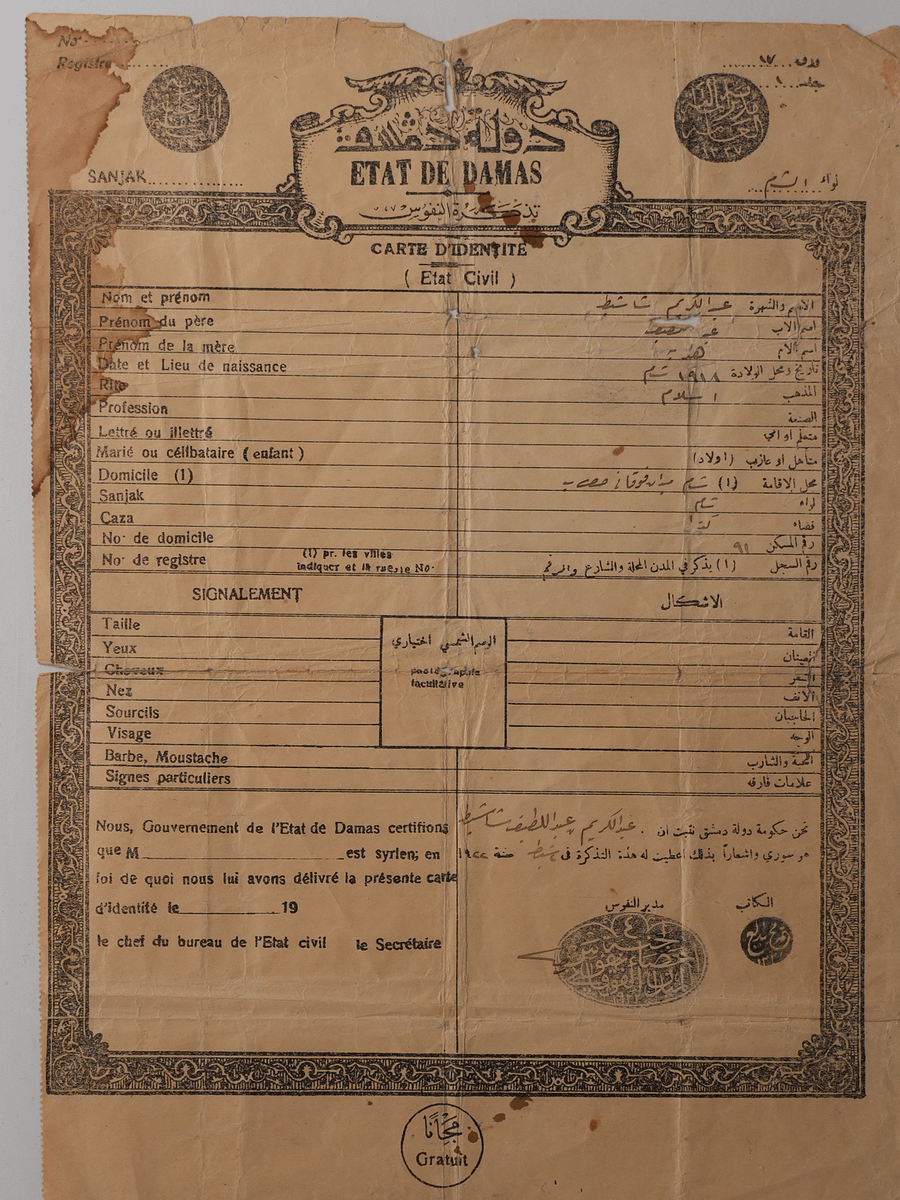 No
Registre
نواق ١٧
جلد ١
دولة دمشق
ETAT DE DAMAS
تذكرة النفوس
SANJAK
لواء الشام
CARTE D'IDENTITÉ
( Etat Civil )
Nom et prénom عبدالكريم شاشيط الاسم والشهرة
Prénom du père اسم الاب
Prénom de la mère اسم الام
Date et Lieu de naissance ١٩١٨ شام تاريخ ومحل الولادة
Rite اسلام المذهب
Profession الصنعة
Lettré ou illettré متعلم او امي
Marié ou célibataire ( enfant ) متأهل او عازب (اولاد)
Domicile (1) شام ميدان فوقاني محل الاقامة (١)
Sanjak شام لواء
Caza كذا قضاء
No· de domicile ٩١ رقم المسكن
No· de registre (1) pr. les villes indiquer et la rue le No· (١) يذكر في المدن المحلة والشارع والرقم رقم السجل
SIGNALEMENT الاشكال
Taille القامة
Yeux العينان
Cheveux الشعر
Nez الانف
Sourcils الحاجبان
Visage الوجه
Barbe, Moustache اللحية والشارب
Signes particuliers علامات فارقه
الرسم الشمسي اختياري
photographie
facultative
Nous, Gouvernement de l'Etat de Damas certifions
que M est syrien; en
foi de quoi nous lui avons délivré la présente carte
d'identité le 19
le chef du bureau de l'Etat civil le Secrétaire
نحن حكومة دولة دمشق نثبت ان عبدالكريم عبداللطيف شاشيط
هو سوري واشعاراً بذلك اعطيت له هذه التذكرة في شباط سنة ١٩٢٢
مدير النفوس الكاتب
مجاناً
Gratuit